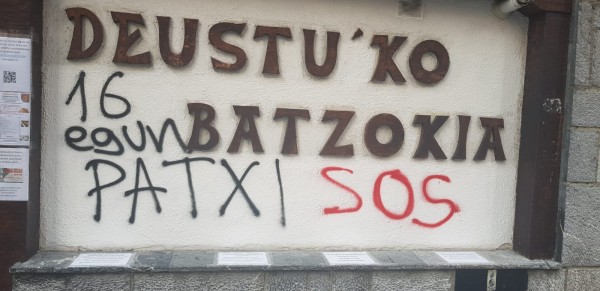 DEUSTU'KO
BATZOKIA
16
egun
PATXI SOS